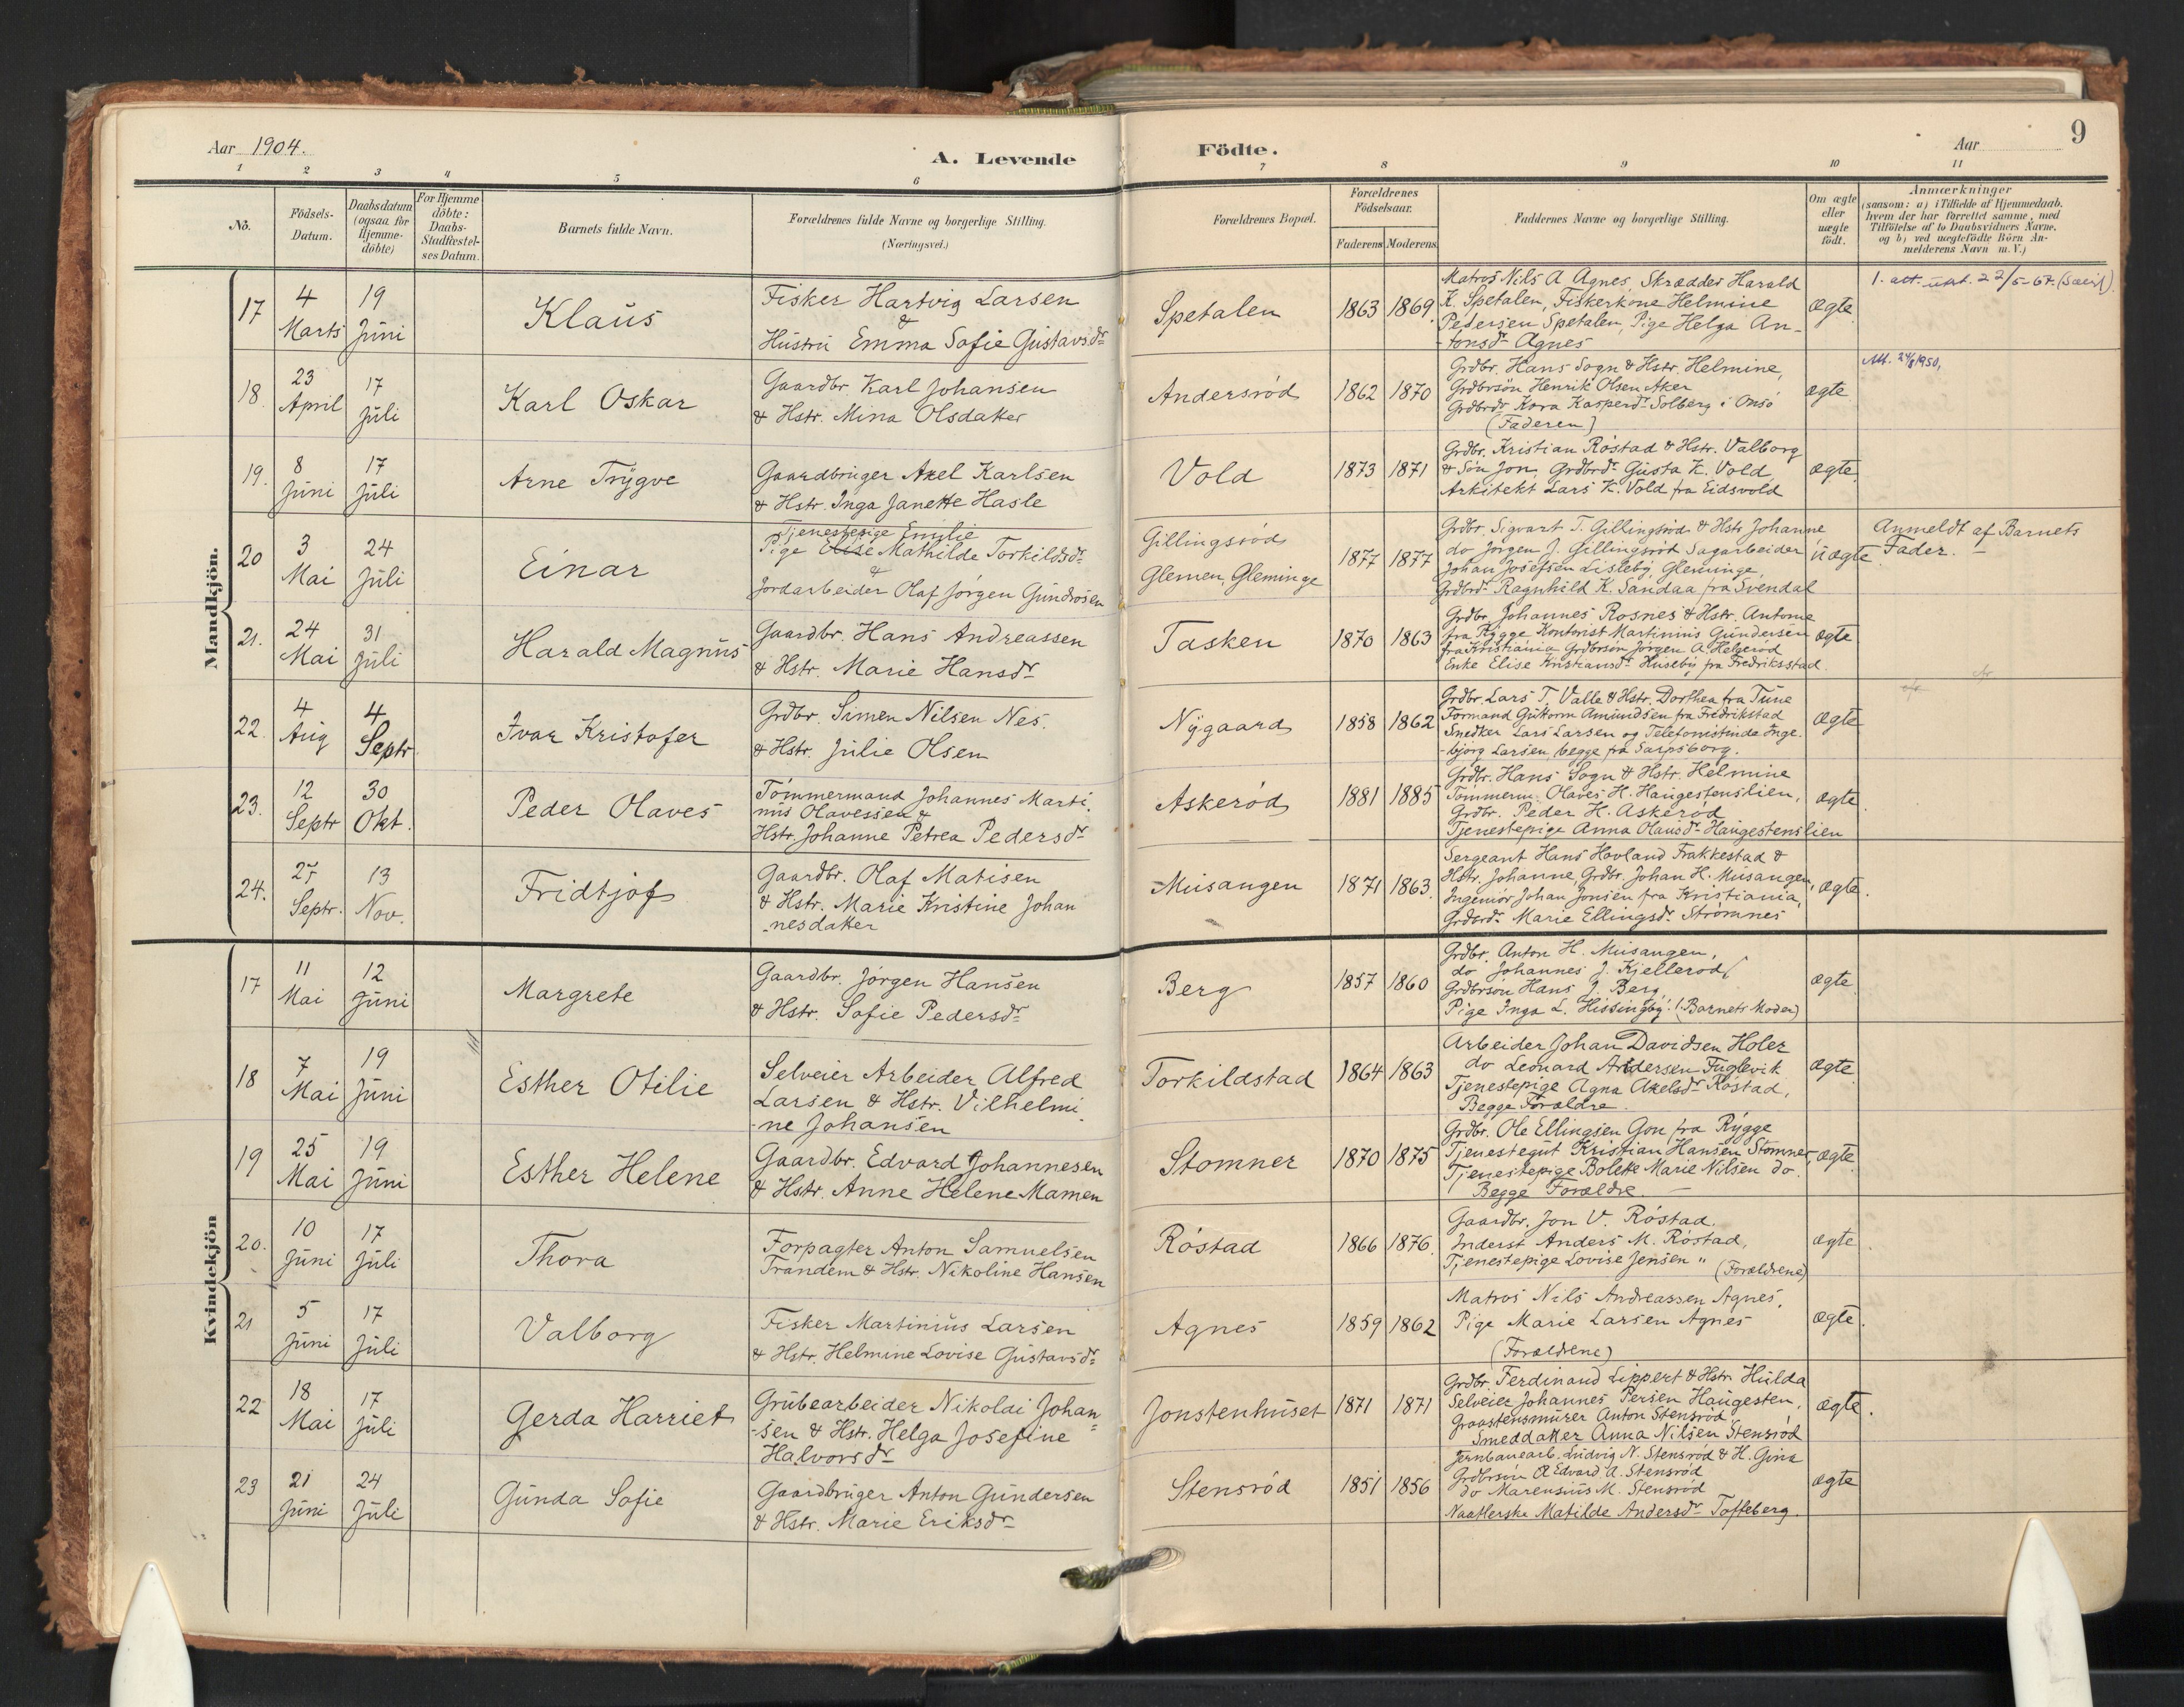 Aar 1904.
A. Levende
Födte.
Aar
9
1 2 3 4 5 6 7 8 9 10 11
No.
Födsels-Datum.
Daabsdatum (ogsaa for Hjemme-döbte)
For Hjemme döbte: Daabs-Stadfæstel-ses Datum.
Barnets fulde Navn.
Forældrenes fulde Navne og borgerlige Stilling.
(Næringsvei.)
Forældrenes Bopæl.
Forældrenes Födselsaar.
Faderens Moderens
Faddernes Navne og borgerlige Stilling.
Om ægte eller uægte födt.
Anmærkninger
(saasom: a) i Tilfælde af Hjemmedaab.
hvem der har forrettet samme, med
Tilföielse af to Daabsvidners Navne.
og b) ved uægtefödte Börn An-
melderens Navn m.V.)
Mandkjön.
17
4 Marts
19 Juni
Klaus
Fisker Hartvig Larsen
&
Hustru Emma Sofie Gustavsdr
Spetalen
1863 1869.
Matros Nils A Agnes, Skrædder Harald
K. Spetalen, Fiskerkone Helmine
Pedersen Spetalen, Pige Helga An-
-tonsdr Agnes
Ægte
1. att. utst. 22/5-67.
18.
23 April
17 Juli
Karl Oskar
Gaardbr. Karl Johansen
& Hstr. Mina Olsdatter
Andersröd
1862 1870
Grdbr. Hans Sogn & Hstr. Helmine,
Grdbrsön Henrik Olsen Aker
Grdbrdr Kara Kasperdr Solberg i Onsö
(Faderen)
ægte
Att. 24/8 1950,
19.
8 Juni
17 Juli
Arne Trygve
Gaardbruger Axel Karlsen
& Hstr. Inga Janette Hasle
Vold
1873 1871
Grdbr. Kristian Röstad & Hstr. Valborg
& Sön Jon, Grdbrdr Gusta K. Vold,
Arkitekt Lars K. Vold fra Eidsvold
ægte.
20
3 Mai
24 Juli
Einar
Tjenestepige Emilie
Pige Elise Mathilde Torkildsdr
&
Jordarbeider Olaf Jörgen Gundrosen
Gillingsröd
Glemen, Gleminge
1877 1877
Grdbr. Sigvart T. Gillingsröd & Hstr Johanne,
do Jörgen J. Gillingsröd Sagarbeider
Johan Josefsen Lisleby Gleminge
Grdbrdr Ragnhild K. Sandaa fra Svendal
Uægte
Anmeldt af Barnets
Fader.
21.
24 Mai
31 Juli
Harald Magnus
Gaardbr. Hans Andreassen
& Hstr. Marie Hansdr
Tasken
1870 1863
Grdbr. Johannes Rosnes & Hstr. Antone
fra Rygge Kontorist Martinius Gundersen
fra Kristiania Grdbrsön Jörgen A Helgeröd
Enke Elise Kristiansdr Huseby fra Fredriksstad.
ægte
22.
4 Aug
4 Septr.
Ivar Kristofer
Grdbr. Simen Nilsen Nes.
& Hstr. Julie Olsen
Nygaard
1858 1862
Grdbr. Lars T. Valle & Hstr. Dorthea fra Tune
Formand Guttorm Amundsen fra Fredrikstad
Snedker Lars Larsen og Telefonistinde Inge-
-björg Larsen, begge fra Sarpsborg.
ægte
23.
12 Septr
30 Okt.
Peder Olaves
Tömmermand Johannes Marti-
nius Olavessen &
Hstr. Johanne Petrea Pedersdr
Askeröd
1881 1885
Grdbr. Hans Sogn & Hstr. Helmine
Tömmerm. Olaves H. Haugestenslien,
Grdbr. Peder H. Askeröd
Tjenestepige Anna Olausdr Haugestenslien
ægte.
24.
27 Septr.
13 Nov.
Fridtjof
Gaardbr. Olaf Matisen
& Hstr. Marie Kristine Johan
-nesdatter
Musangen
1871 1863.
Sergeant Hans Hovland Frakkestad &
Hstr. Johanne, Grdbr. Johan H. Musangen,
Ingeniör Johan Jonsen fra Kristiania,
Grdbrdr Marie Ellingsdr Strömnes
ægte.
Kvindekjön
17
11 Mai
12 Juni
Margrete
Gaardbr. Jörgen Hansen
& Hstr. Sofie Pedersdr
Berg
1857 1860
Grdbr. Anton H. Musangen,
do Johannes J. Kjelleröd
Grdbrsön Hans J. Berg
Pige Inga L. Hissingby. (Barnets Moder)
ægte.
18
7 Mai
19 Juni
Esther Otilie
Selveier Arbeider Alfred
Larsen & Hstr. Vilhelmi
-ne Johansen
Torkildstad
1864 1863
Arbeider Johan Davidsen Holer
do Leonard Andersen Fuglevik
Tjenestepige Agna Akselsdr Röstad,
Begge Forældre.
ægte
19
25 Mai
19 Juni
Esther Helene
Gaardbr. Edvard Johannesen
& Hstr. Anne Helene Mamen
Stomner
1870 1875
Grdbr. Ole Ellingsen Gon fra Rygge
Tjenestegut Kristian Hansen Stomner,
Tjenestepige Bolette Marie Nilsen do.
Begge Forældre.
ægte
20.
10 Juni
17 Juli
Thora
Forpagter Anton Samuelsen
Trandem & Hstr. Nikoline Hansen
Röstad
1866 1876.
Gaardbr. Jon V. Röstad.
Inderst Anders M. Röstad,
Tjenestepige Lovise Jensen " (Forældrene)
ægte
21
5 Juni
17 Juli
Valborg
Fisker Martinius Larsen
& Hstr. Helmine Lovise Gustavsdr
Agnes
1859 1862
Matros Nils Andreassen Agnes,
Pige Marie Larsen Agnes
(Forældrene)
ægte.
22
18 Mai
17 Juli
Gerda Harriet
Grubearbeider Nikolai Johan
-sen & Hstr. Helga Josefine
Halvorsdr
Jonstenhuset
1871 1871
Grdbr. Ferdinand Lippert & Hstr. Hulda
Selveier Johannes Persen Haugesten,
Graastensmurer Anton Stensröd,
Smeddatter Anna Nilsen Stensröd
ægte.
23
21 Juni
24 Juli
Gunda Sofie
Gaardbruger Anton Gundersen
& Hstr. Marie Eriksdr
Stensröd
1851 1856
Jernbanearb. Ludvig N. Stensröd & H. Gina
Grdbrsön Edvard A. Stensröd
do Marensius M. Stensröd
Naatlerske Matilde Andersdr Tofteberg.
ægte